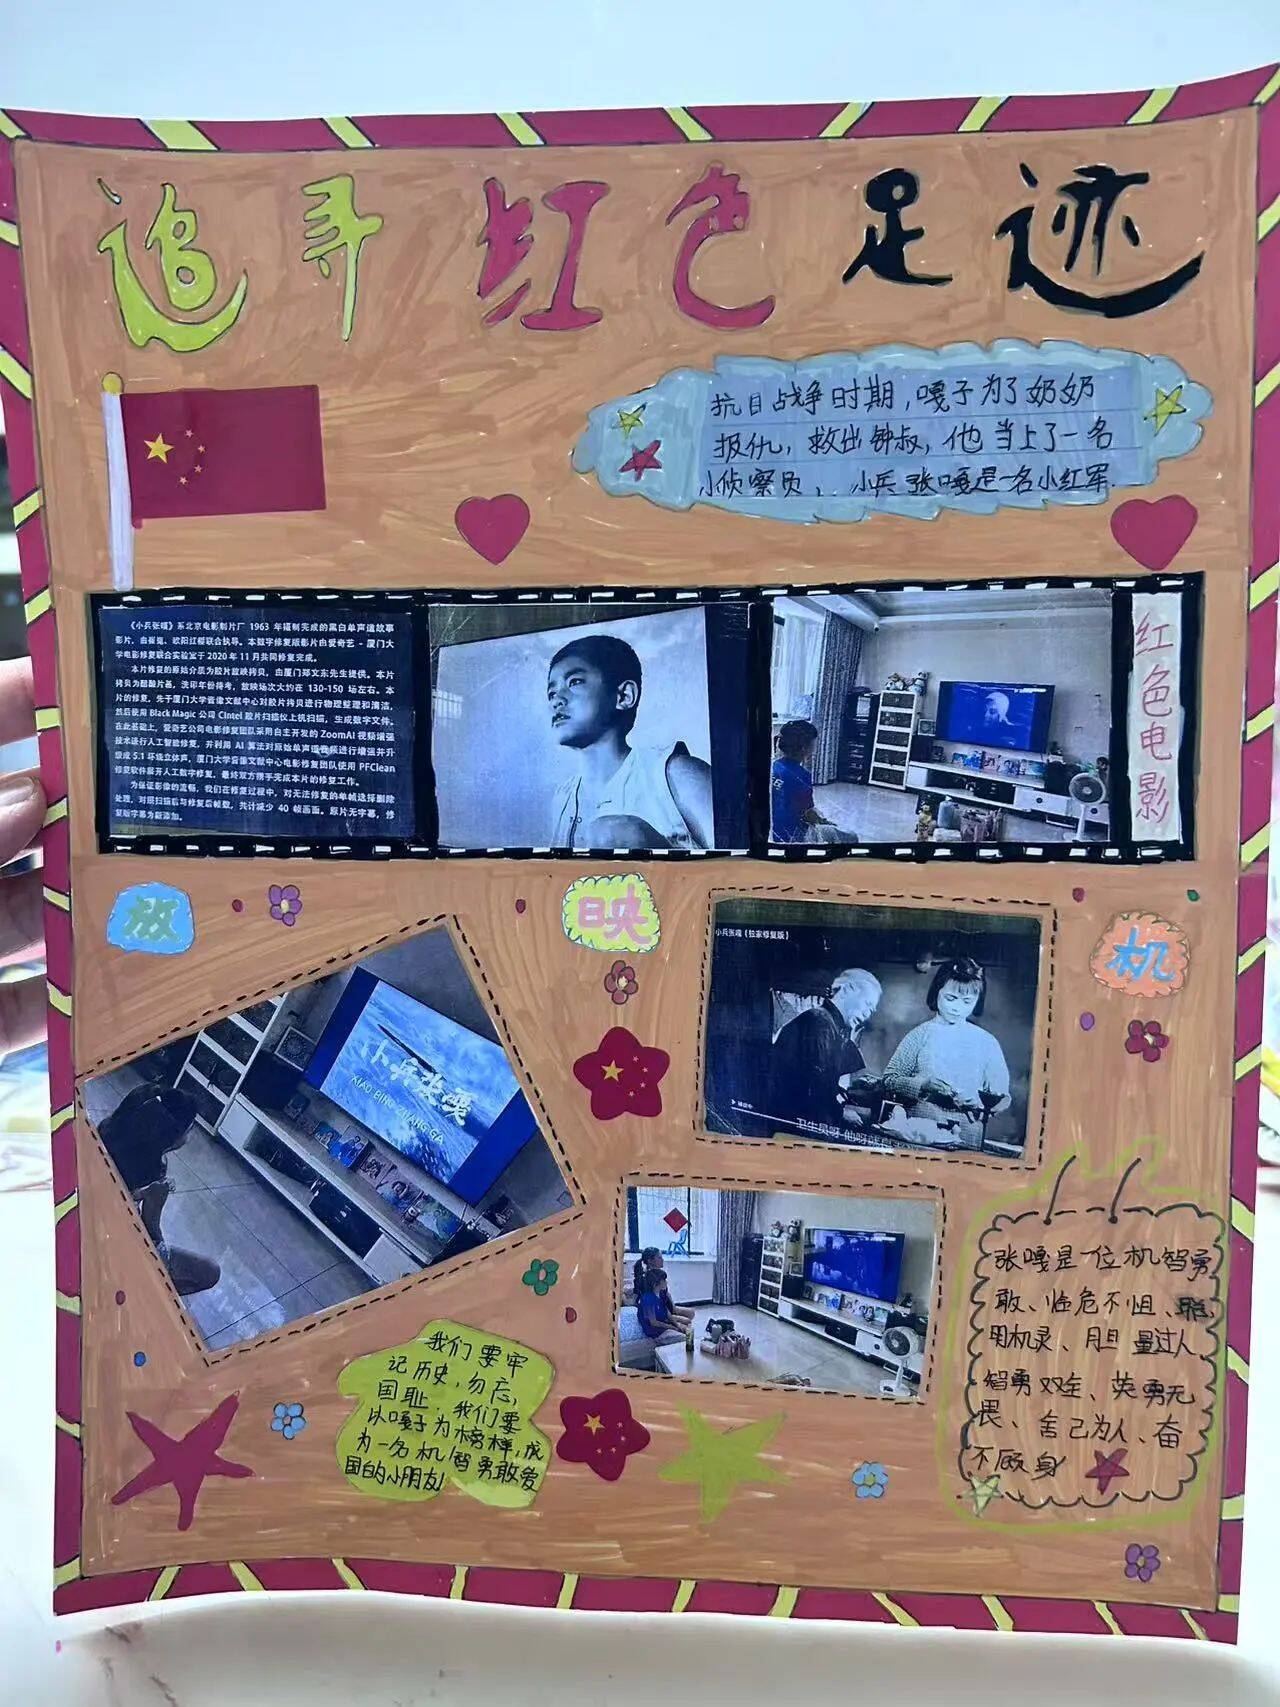 追寻红色足迹
抗日战争时期，嘎子为了奶奶
报仇，救出钟叔，他当上了一名
小侦察员，小兵张嘎是一名小红军.
《小兵张嘎》系北京电影制片厂 1963 年摄制完成的黑白单声道故事
影片，由崔嵬、欧阳红樱联合执导。本数字修复版影片由爱奇艺-厦门大
学电影修复联合实验室于 2020 年 11 月共同修复完成。
本片修复的原始介质为胶片放映拷贝，由厦门郑文东先生提供。本片
拷贝为醋酸片基，洗印年份待考，放映场次大约在 130-150 场左右。本
片的修复，先于厦门大学音像文献中心对胶片拷贝进行物理整理和清洁，
然后使用 Black Magic 公司 Cintel 胶片扫描仪上机扫描，生成数字文件。
在此基础上，爱奇艺公司电影修复团队采用自主开发的 ZoomAI 视频增强
技术进行人工智能修复，并利用 AI 算法对原始单声道音频进行增强并升
级成 5.1 环绕立体声，厦门大学音像文献中心电影修复团队使用 PFClean
修复软件展开人工数字修复，最终双方携手完成本片的修复工作。
为保证影像的流畅，我们在修复过程中，对无法修复的单帧选择删除
处理，对照扫描后与修复后帧数，共计减少 40 帧画面。原片无字幕，修
复版字幕为新添加。
红色电影
放映机
小兵张嘎
XIAO BING ZHANG GA
小兵张嘎（独家修复版）
卫生员呀 他呀
张嘎是一位机智勇
敢、临危不惧、聪
明机灵、胆量过人
智勇双全、英勇无
畏、舍己为人、奋
不顾身
我们要牢
记历史，勿忘
国耻：我们要
以嘎子为榜样，成
为一名机智勇敢爱
国的小朋友